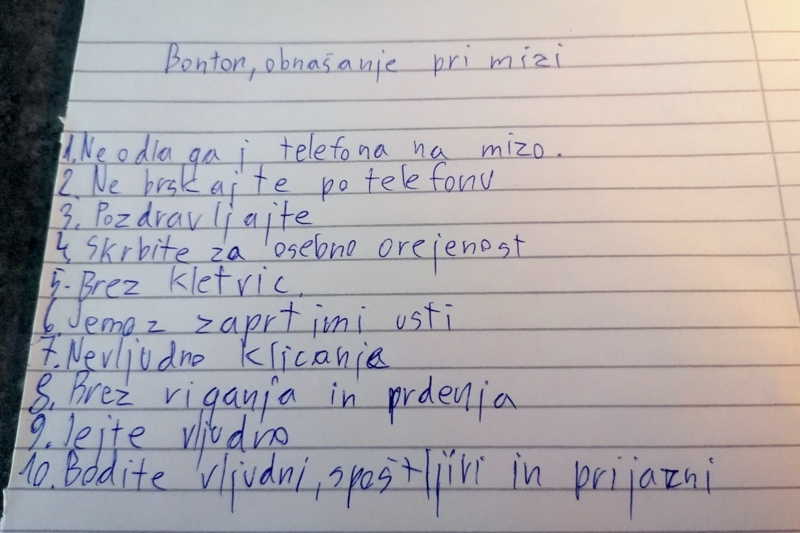 Bonton, obnašanje pri mizi
1. Ne odlagaj telefona na mizo.
2. Ne brskajte po telefonu
3. Pozdravljajte
4. Skrbite za osebno orejenost
5. Brez kletvic.
6. Jemo z zaprtimi usti
7. Nevljudno klicanje
8. Brez riganja in prdenja
9. Jejte vljudno
10. Bodite vljudni, spoštljivi in prijazni